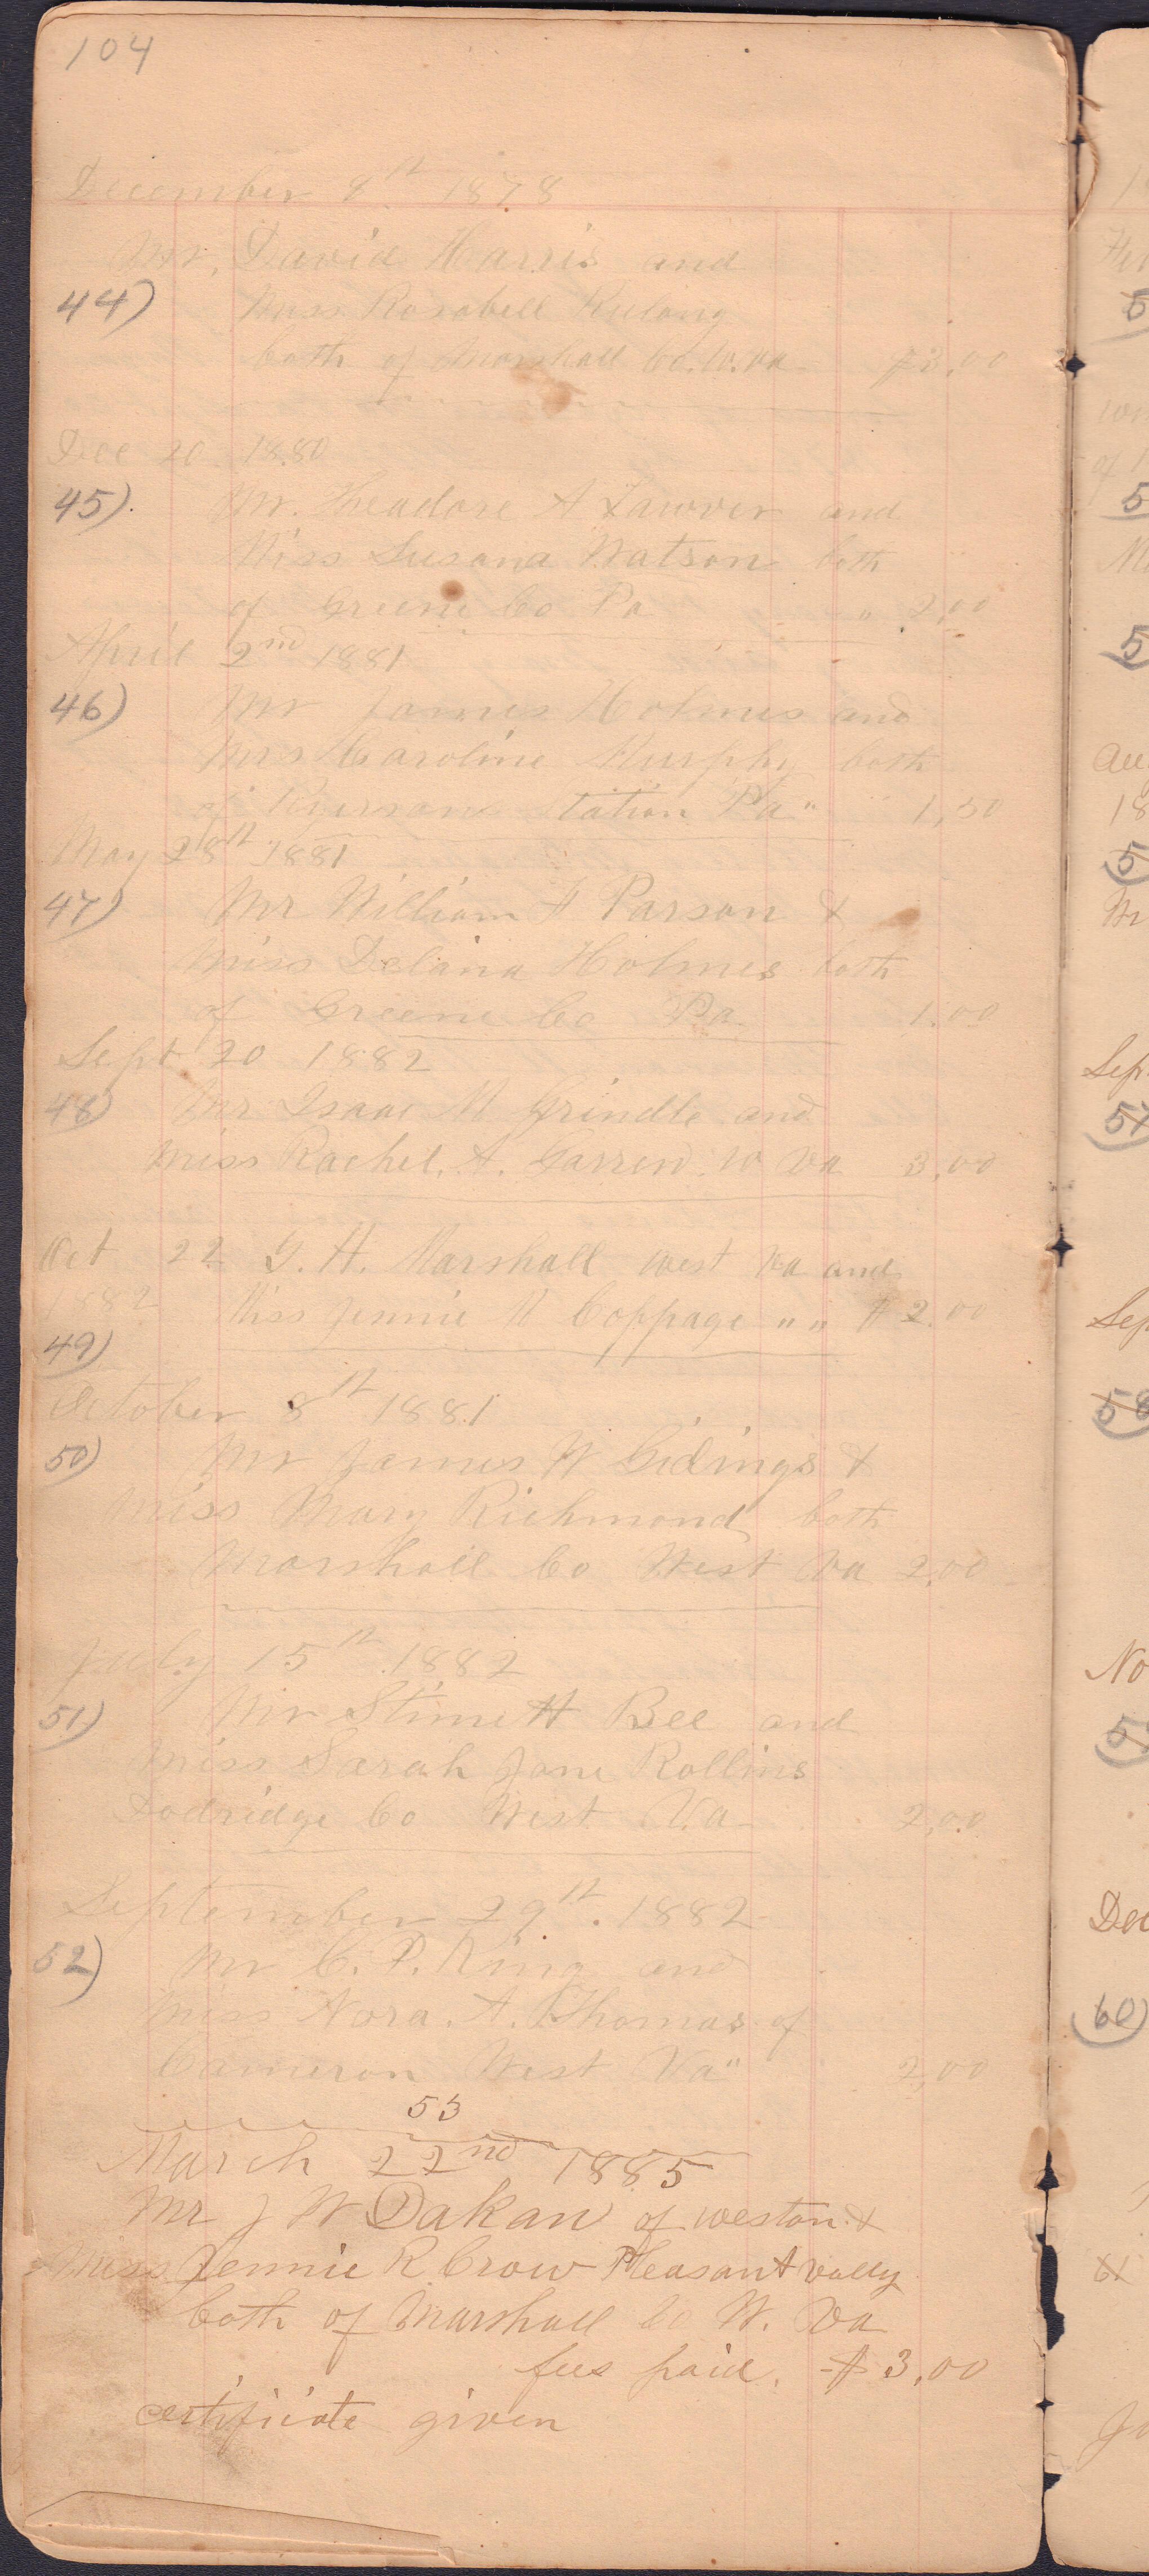 104
December 8th 1878
Mr. David Harris and
44) Miss Rosabell Rulong
both of Marshall Co. W. Va. $3.00
Dec 20. 1880
45). Mr. Theadore A Lawver and
Miss Susana Watson both
of Greene Co Pa " 2.00
April 2nd 1881
46) Mr James Holmes and
Mrs Caroline Murphy both
of Ryerson Station Pa" 1,50
May 28th 1881
47) Mr William F Parson &
Miss Delaina Holmes both
of Greene Co Pa 1.00
Sept 20 1882
48) Mr Isaac M Grindle and
Miss Rachel. A. W Va 3,00
Oct 22 G. H. Marshall West Va and
1882 Miss Jennie M Coppage " " $2.00
49)
October 8th 1881
50) Mr James W Gidings &
Miss Mary Richmond both
Marshall Co West Va 2,00
July 15th 1882
51) Mr H Bee and
Miss Sarah Jane Rollins
Dodridge Co West Va 2,00
September 29th. 1882
52) Mr C. P. King and
Miss Nora. A. Thomas of
Cameron West Va" 2,00
53
March 22nd 1885
Mr J W Dakan of weston &
Miss Jennie R Crow Pleasant vally
both of Marshall Co W. Va
fees paid. $3,00
certificate given